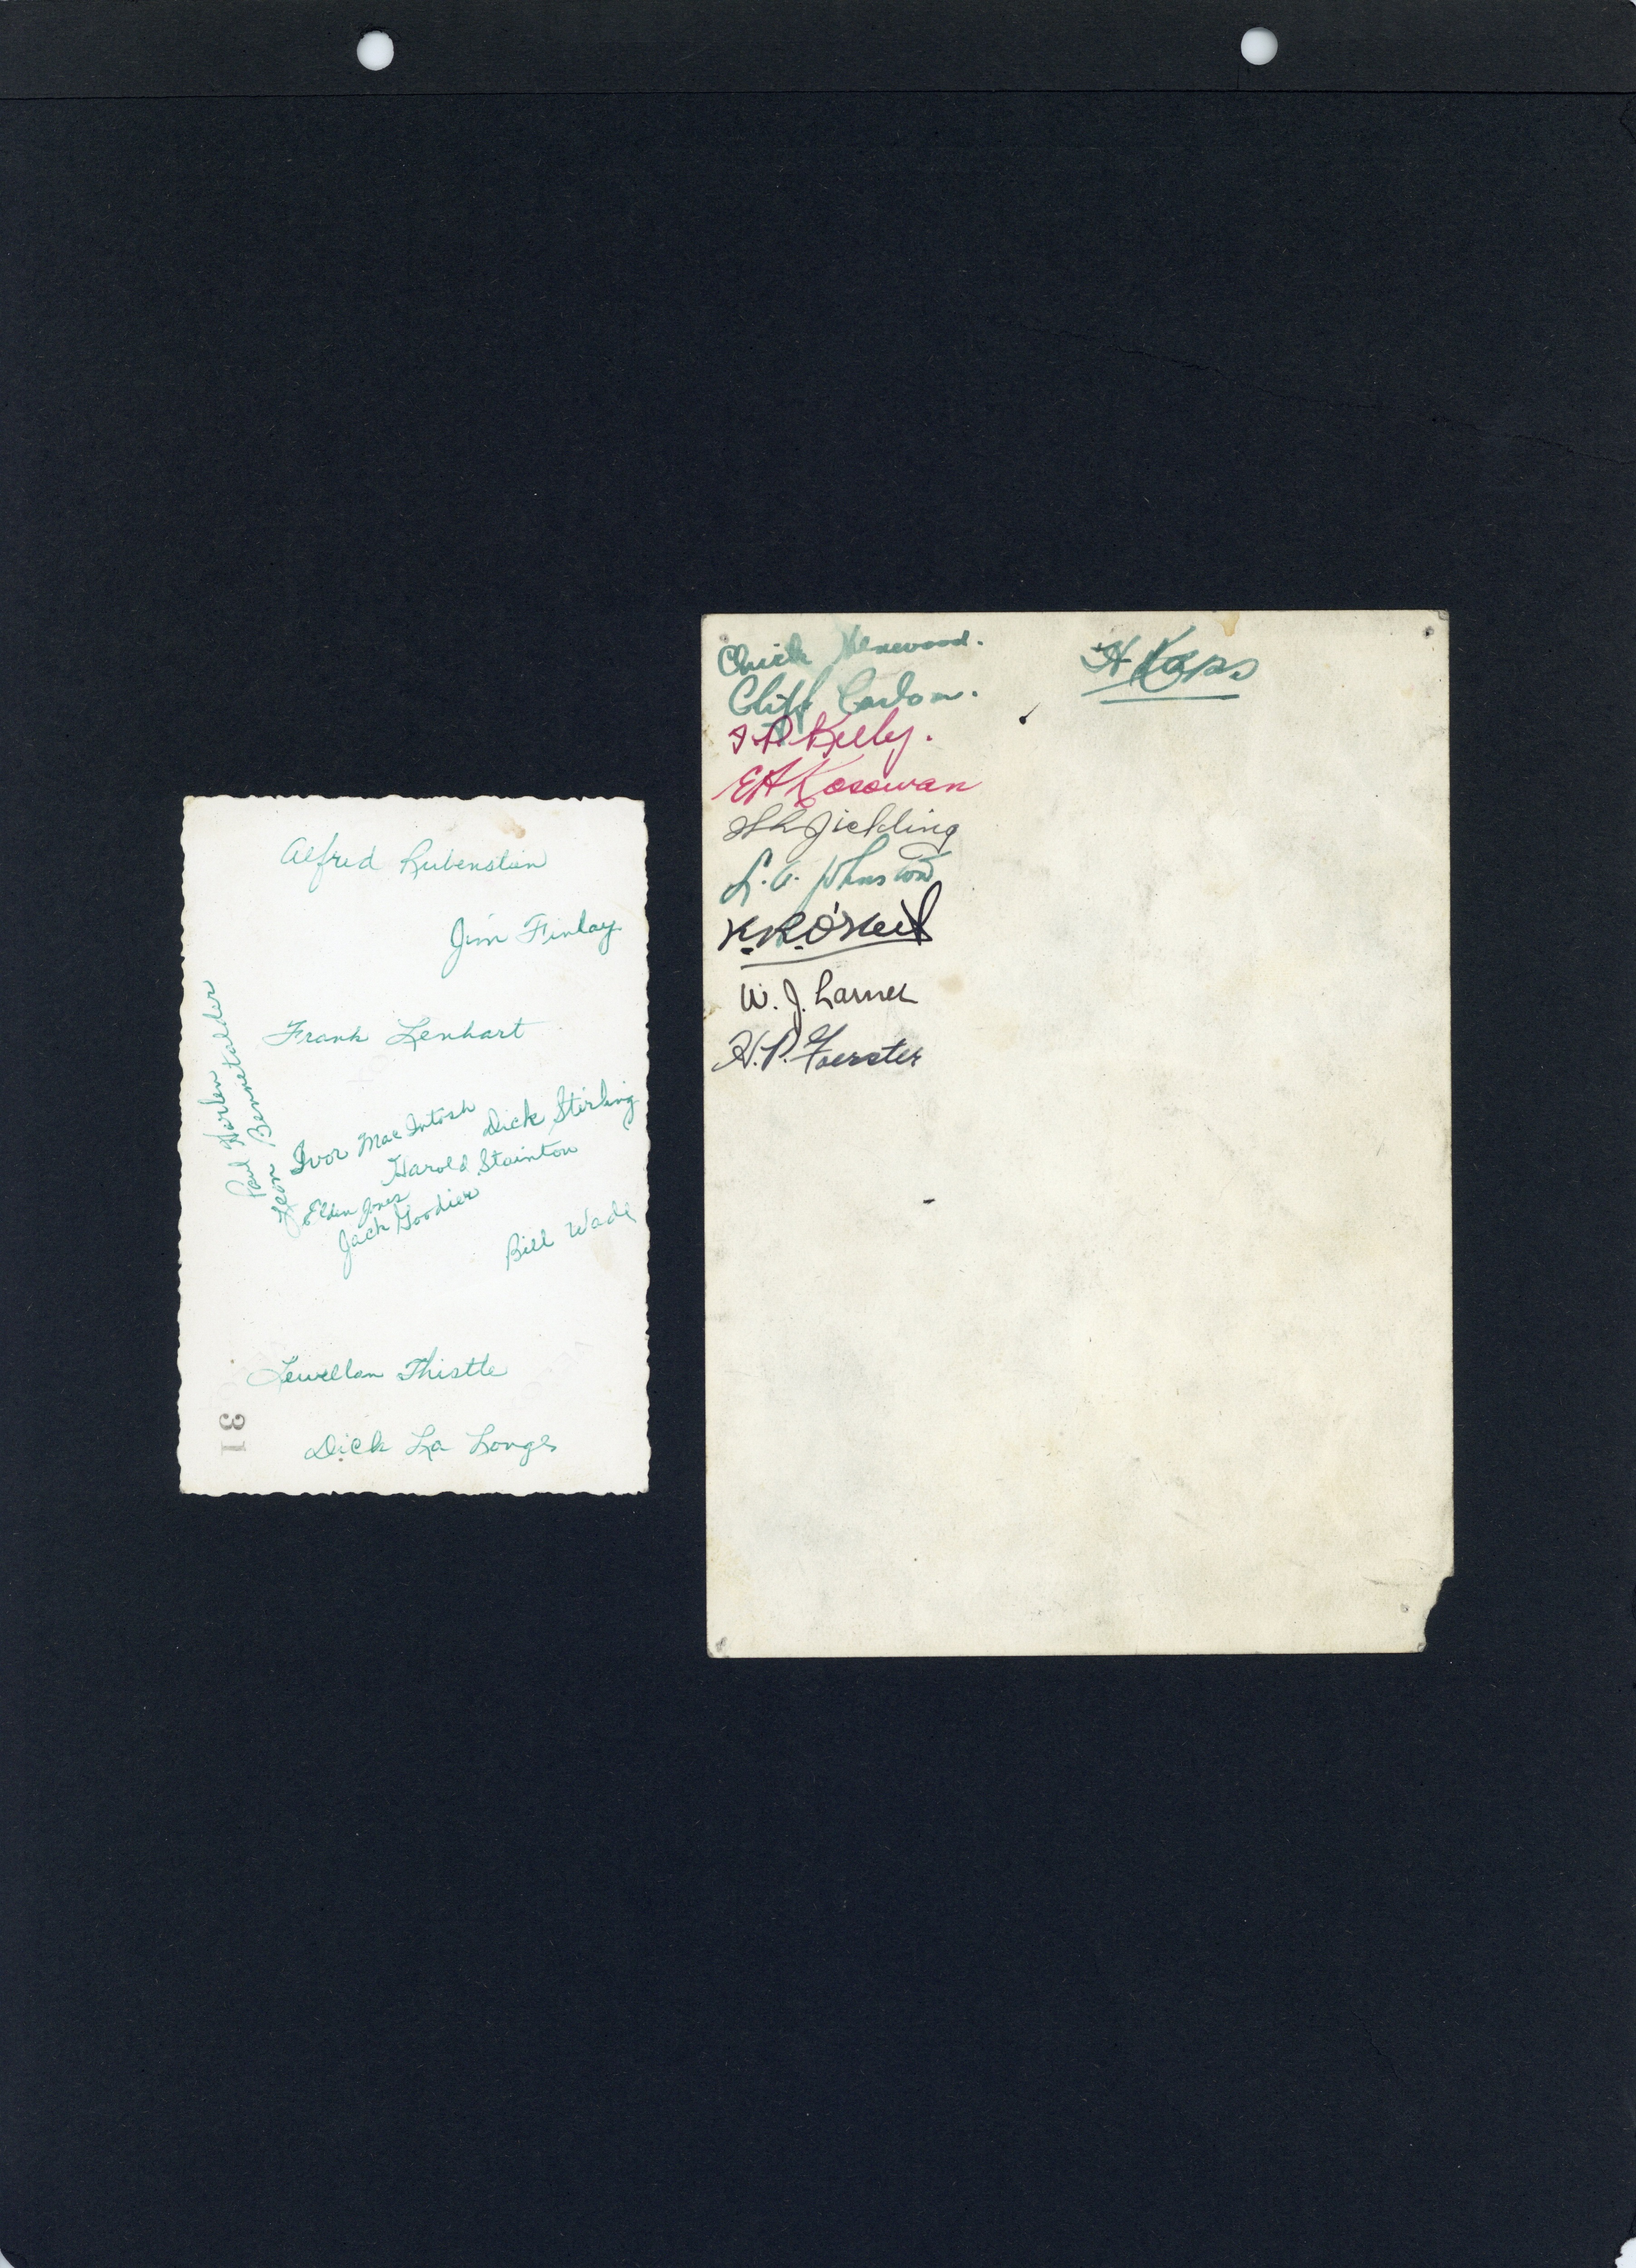 Alfred Rubenstein
Jim Finlay
Frank Lenhart
Paul Harlen
Leon Bennetalder
Ivor MacIntosh
Dick Stirling
Harold Stainton
Elden Jones
Jack Goodier
Bill Wade
Lewellan Thistle
Dick La Longe
31
Chuck Henwood.
Cliff Carlson.
Kelly.
EA Kosowan
Fielding
L. A. Johnston
K.R. O'Neil
W. J. Larner
H. P. Foerster
H Kops